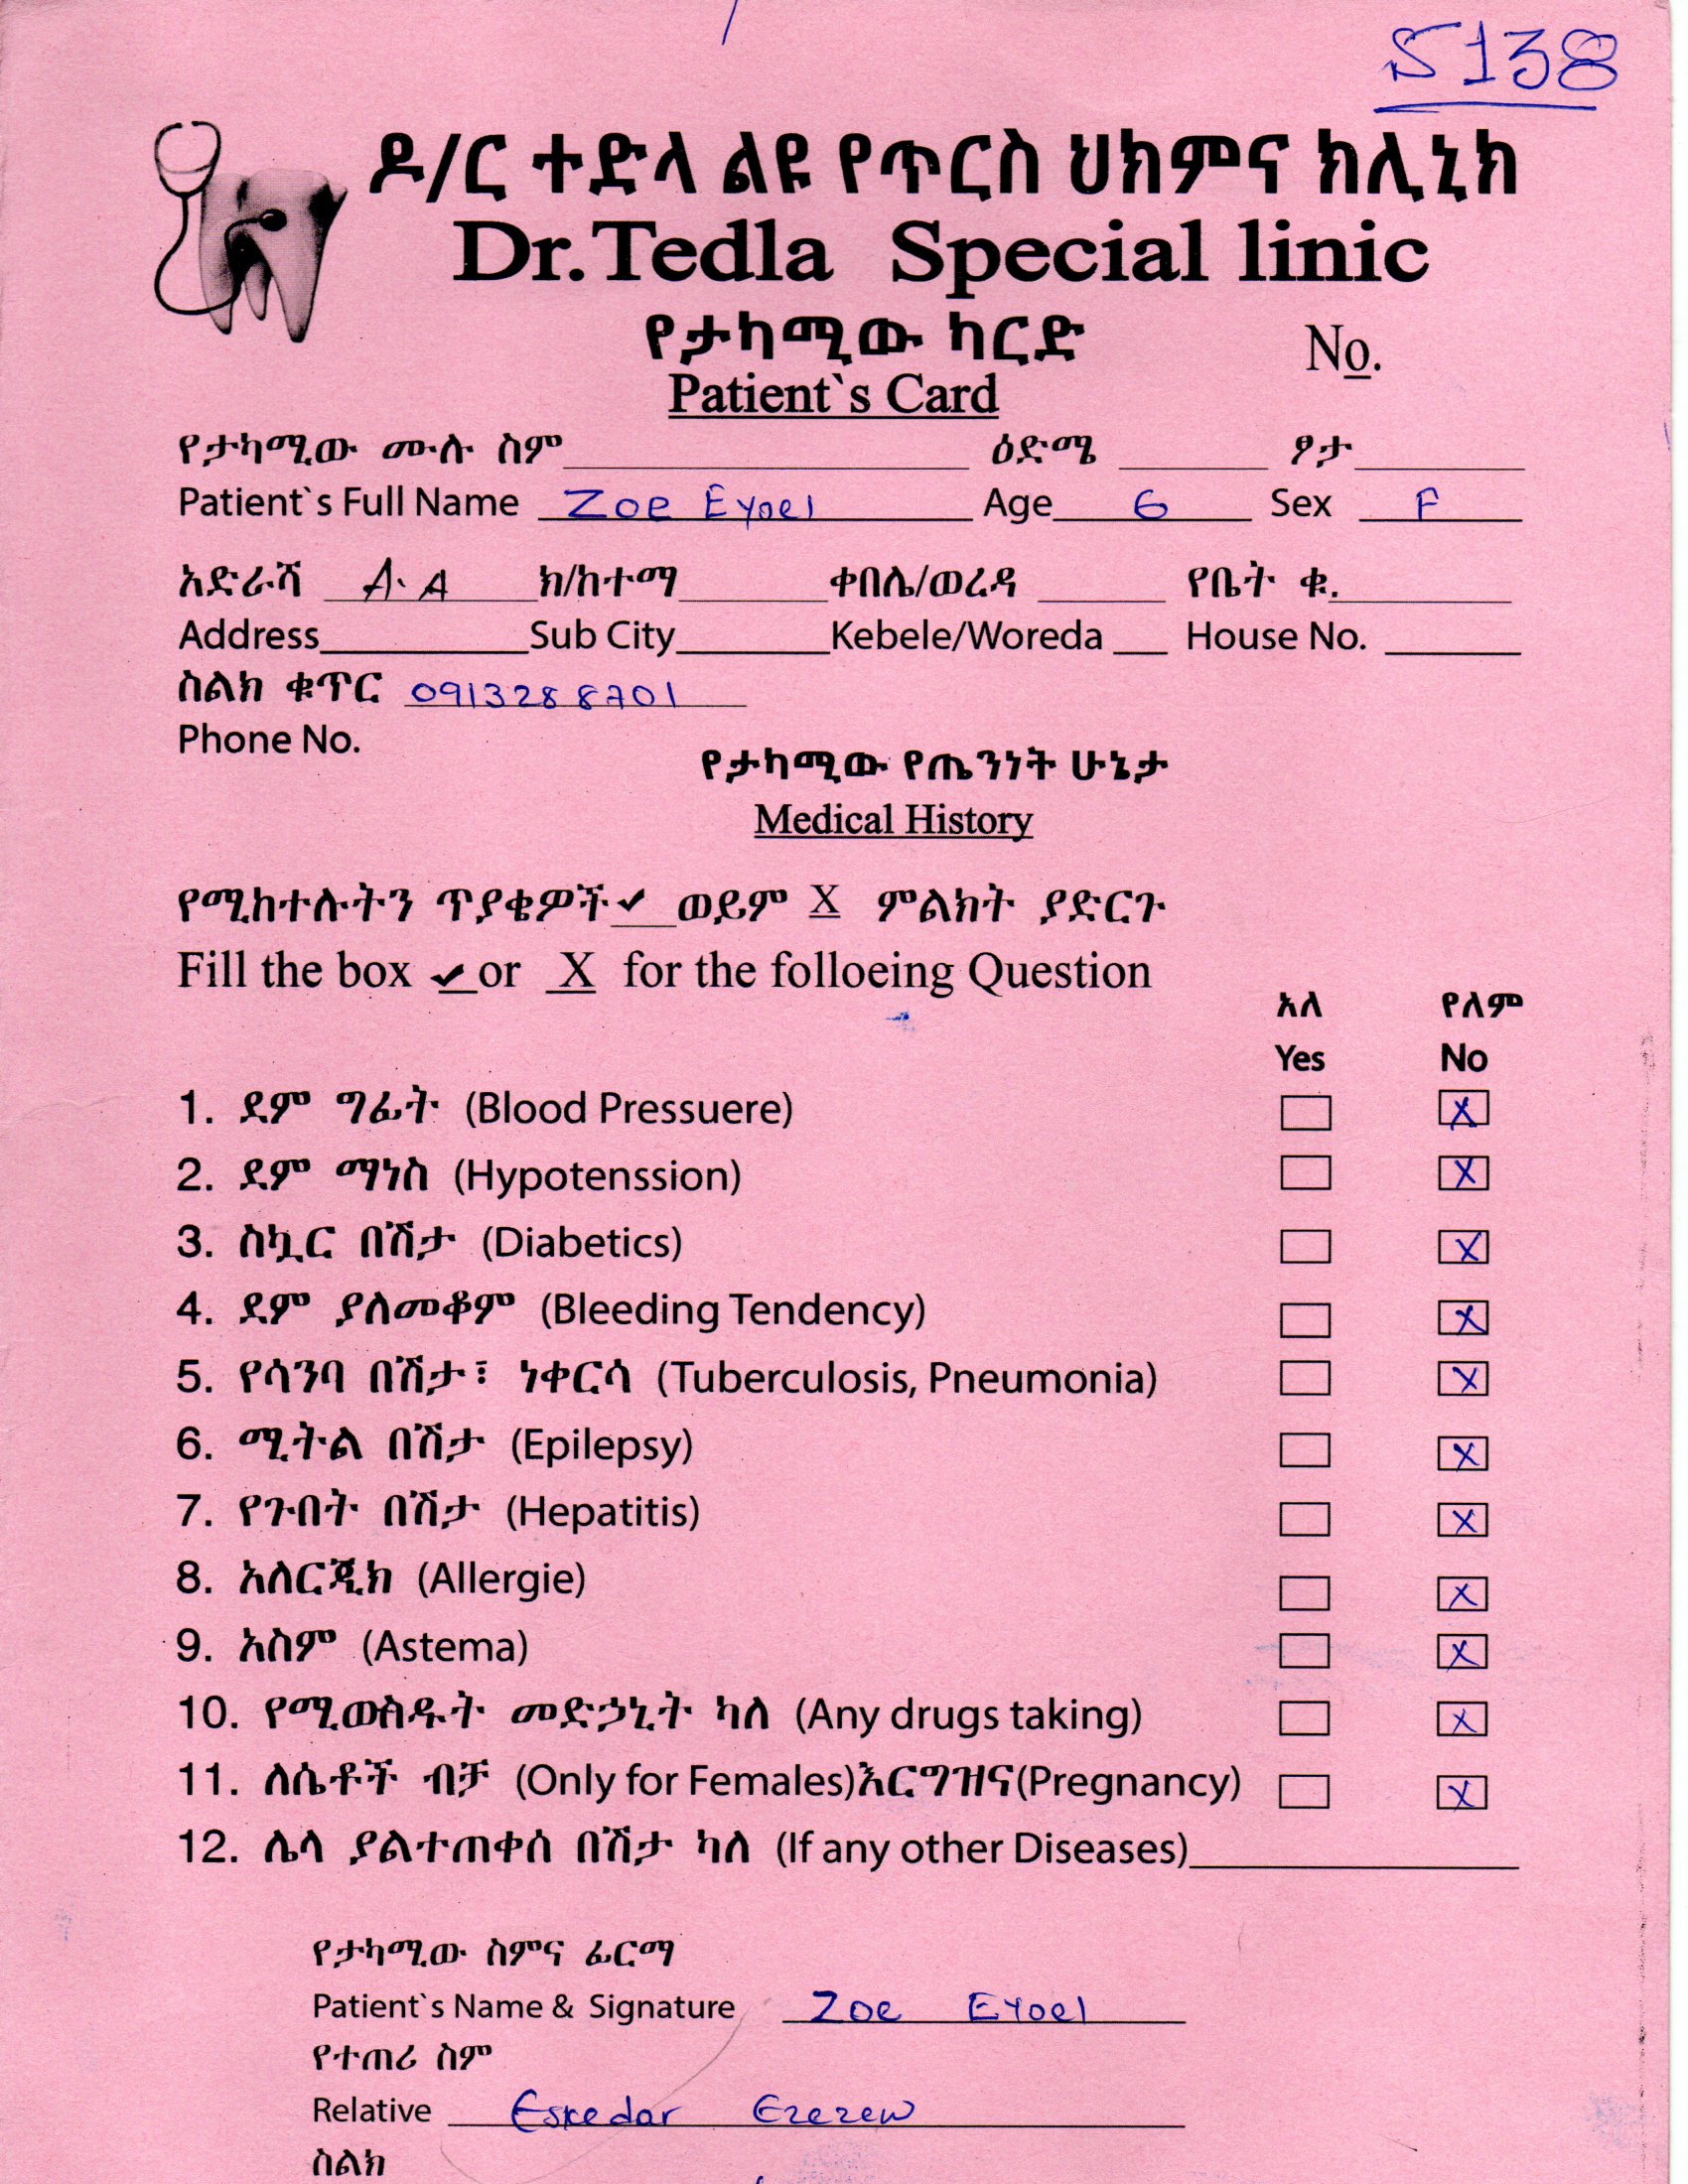 S138
ዶ/ር ተድላ ልዩ የጥርስ ህክምና ክሊኒክ
Dr.Tedla Special linic
የታካሚው ካርድ
No.
Patient`s Card
የታካሚው ሙሉ ስም ዕድሜ ፆታ
Patient`s Full Name Zoe Eyoel Age 6 Sex F
አድራሻ A.A ክ/ከተማ ቀበሌ/ወረዳ የቤት ቁ.
Address Sub City Kebele/Woreda House No.
ስልክ ቁጥር 0913288701
Phone No.
የታካሚው የጤንነት ሁኔታ
Medical History
የሚከተሉትን ጥያቄዎች ✓ ወይም X ምልክት ያድርጉ
Fill the box ✓ or X for the folloeing Question
አለ የለም
Yes No
1. ደም ግፊት (Blood Pressuere) X
2. ደም ማነስ (Hypotenssion) X
3. ስኳር በሽታ (Diabetics) X
4. ደም ያለመቆም (Bleeding Tendency) X
5. የሳንባ በሽታ፣ ነቀርሳ (Tuberculosis, Pneumonia) X
6. ሚትል በሽታ (Epilepsy) X
7. የጉበት በሽታ (Hepatitis) X
8. አለርጂክ (Allergie) X
9. አስም (Astema) X
10. የሚወስዱት መድኃኒት ካለ (Any drugs taking) X
11. ለሴቶች ብቻ (Only for Females)እርግዝና(Pregnancy) X
12. ሌላ ያልተጠቀሰ በሽታ ካለ (If any other Diseases)
የታካሚው ስምና ፊርማ
Patient`s Name & Signature Zoe Eyoel
የተጠሪ ስም
Relative Eskedar Ezezew
ስልክ